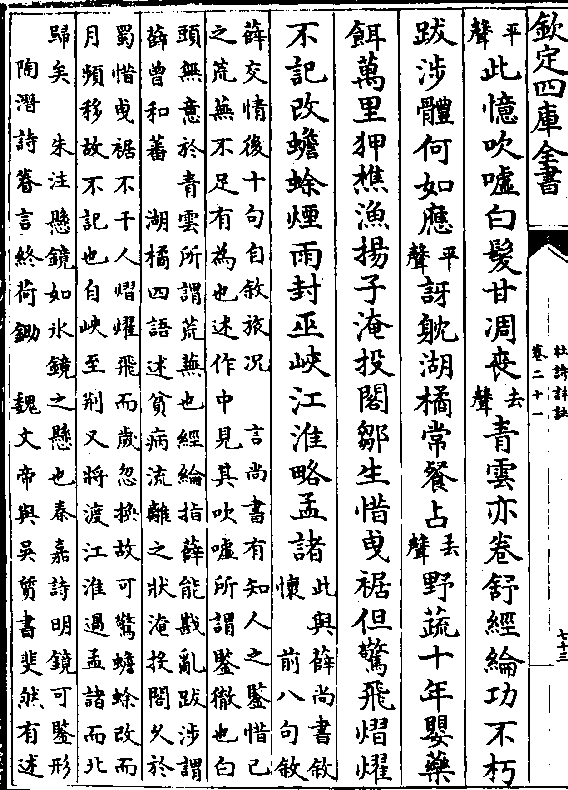 欽定四庫全書
杜詩詳註
卷二十一
七十三
平聲此憶吹噓白髮甘凋喪去聲青雲亦卷舒經綸功不朽
跋涉體何如應平聲訝躭湖橘常餐占去聲野蔬十年嬰藥
餌萬里狎樵漁揚子淹投閣鄒生惜曳裾但驚飛熠燿
不記改蟾蜍煙雨封巫峽江淮略孟諸
此與薛尚書敘
懷 前八句敘
薛交情後十句自敘旅況 言尚書有知人之鑒惜已
之荒蕪不足有為也述作中見其吹噓所謂鑒徹也白
頭無意於青雲所謂荒蕪也經綸指薛能戡亂跋涉謂
薛曾和蕃 湖橘四語述貧病流離之狀淹投閣久於
蜀惜曳裾不干人熠燿飛而歲忽換故可驚蟾蜍改而
月頻移故不記也自峽至荊又將渡江淮過孟諸而北
歸矣 朱注懸鏡如氷鏡之懸也秦嘉詩明鏡可鑒形
陶潛詩眷言終荷鋤 魏文帝與吳質書斐然有述